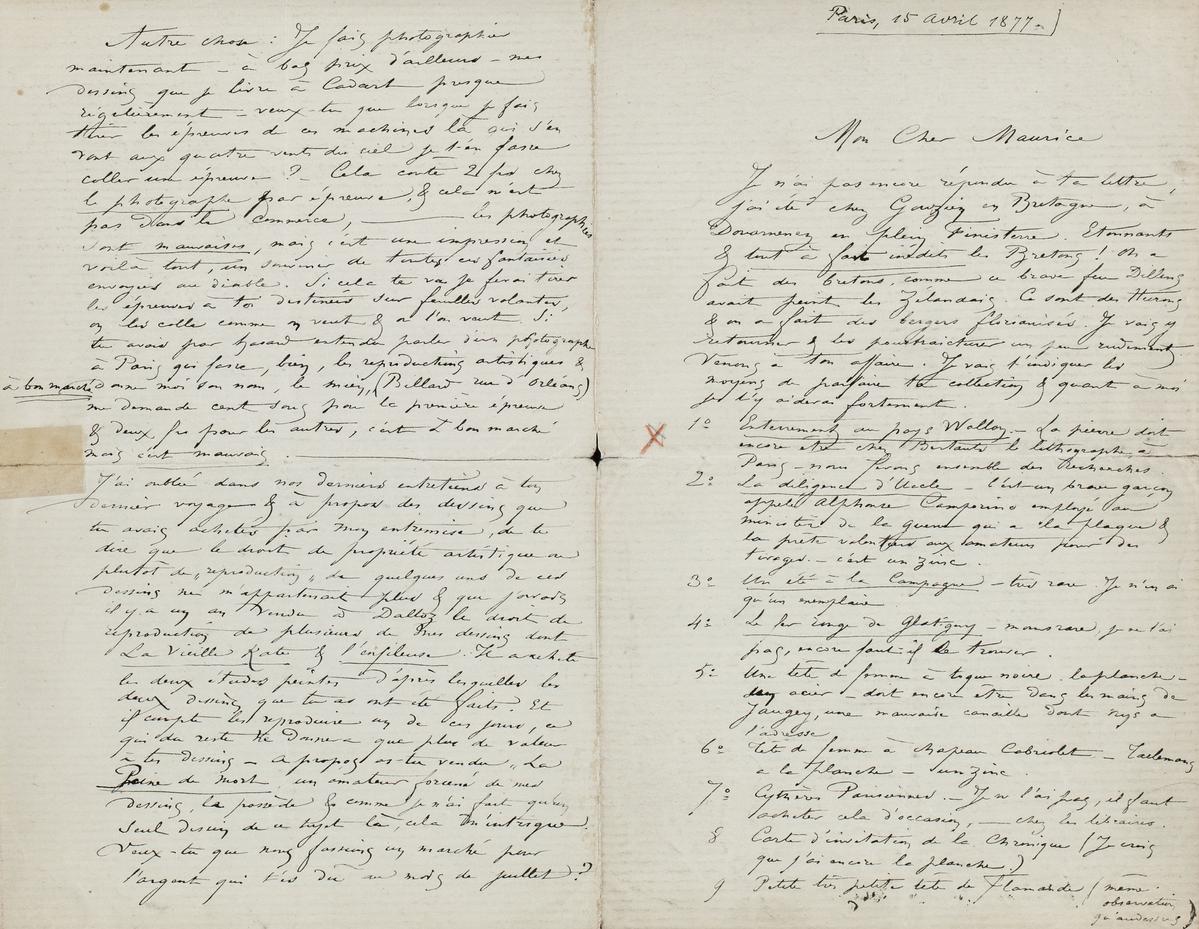 Paris, 15 Avril 1877.
Mon Cher Maurice
Je n'ai pas encore répondu à ta lettre,
j'ai été chez Gouzien en Bretagne, à
Douarnenez en plein Finisterre. Etonnants
& tout à fait inédits les Bretons ! On a
fait des bretons, comme ce brave feu Dillens
avait peint les Zélandais. Ce sont des Hurons
& on a fait des bergers florianisés. Je vais y
retourner & les pourtraicturer un peu rudement
Venons à ton affaire. Je vais t'indiquer les
moyens de parfaire ta collection & quant à moi
je t'y aiderai fortement.
1° Enterrement au pays Wallon. - La pierre doit
encore être chez Bertauts le lithographe, à
Paris - nous ferons ensemble des Recherches.
2° La diligence d'Uccle - C'est un brave garçon
appelé Alphonse employé au
ministère de la guerre qui a la plaque &
la prête volontiers aux amateurs pour des
tirages. - c'est un zinc.
3° Un été à la Campagne - très rare. Je n'en ai
qu'un exemplaire
4° Le fer rouge de Glatigny - moins rare, je ne l'ai
pas, encore faut-il le trouver.
5° Une tête de femme à toque noire. la planche -
acier - doit encore être dans les mains de
Jaugey, une mauvaise canaille dont Nys a
l'adresse
6° Tête de femme à chapeau Cabriolet. - Taelemans
a la planche - un zinc.
7° Cythères Parisiennes. - Je ne l'ai pas, il faut
acheter cela d'occasion, — chez les libraires.
8 Carte d'invitation de la Chronique (Je crois
que j'ai encore la planche.)
9 Petite très petite tête de Flamande (même
observation
qu'au dessus)
Autre chose : Je fais photographier
maintenant - à bas prix d'ailleurs - mes
dessins que je livre à Cadart presque
régulièrement - veux-tu que lorsque je fais
tirer les épreuves de ces machines là qui s'en
vont aux quatre vents du ciel je t'en fasse
coller une épreuve ? - Cela coûte 2 frs chez
le photographe par épreuve, & cela n'est
pas dans le commerce, — les photographies
sont mauvaises, mais c'est une impression et
voilà tout, un souvenir de toutes ces fantaisies
envoyées au diable. Si cela te va je ferai tirer
les épreuves à toi destinées sur feuilles volantes,
on les colle comme on veut & où l'on veut. Si
tu avais par hasard entendu parler d'un photographe
à Paris qui fasse, bien, les reproductions artistiques &
à bon marché donne moi son nom, le mien, (Billard rue d'Orléans)
me demande cent sous pour la première épreuve
& deux frs pour les autres, c'est bon marché
mais c'est mauvais.
J'ai oublié dans nos derniers entretiens à ton
dernier voyage & à propos des dessins que
tu avais achetés par mon entremise, de te
dire que le droit de propriété artistique ou
plutôt de „reproduction„ de quelques uns de ces
dessins ne m'appartenait plus & que j'avais
il y a un an vendu à Dalloz le droit de
reproduction de plusieurs de mes dessins dont
La Vieille Kate & l'enfileuse. Il a acheté
les deux études peintes d'après lesquelles les
deux dessins que tu as ont été faits. Et
il compte les reproduire un de ces jours, ce
qui du reste ne donnera que plus de valeur
à tes dessins - à propos as-tu vendu „La
Peine de mort un amateur forcené de mes
dessins, la possède & comme je n'ai fait qu'un
seul dessin de ce sujet là, cela m'intrigue.
Veux-tu que nous fassions un marché pour
l'argent qui t'est dû au mois de juillet ?